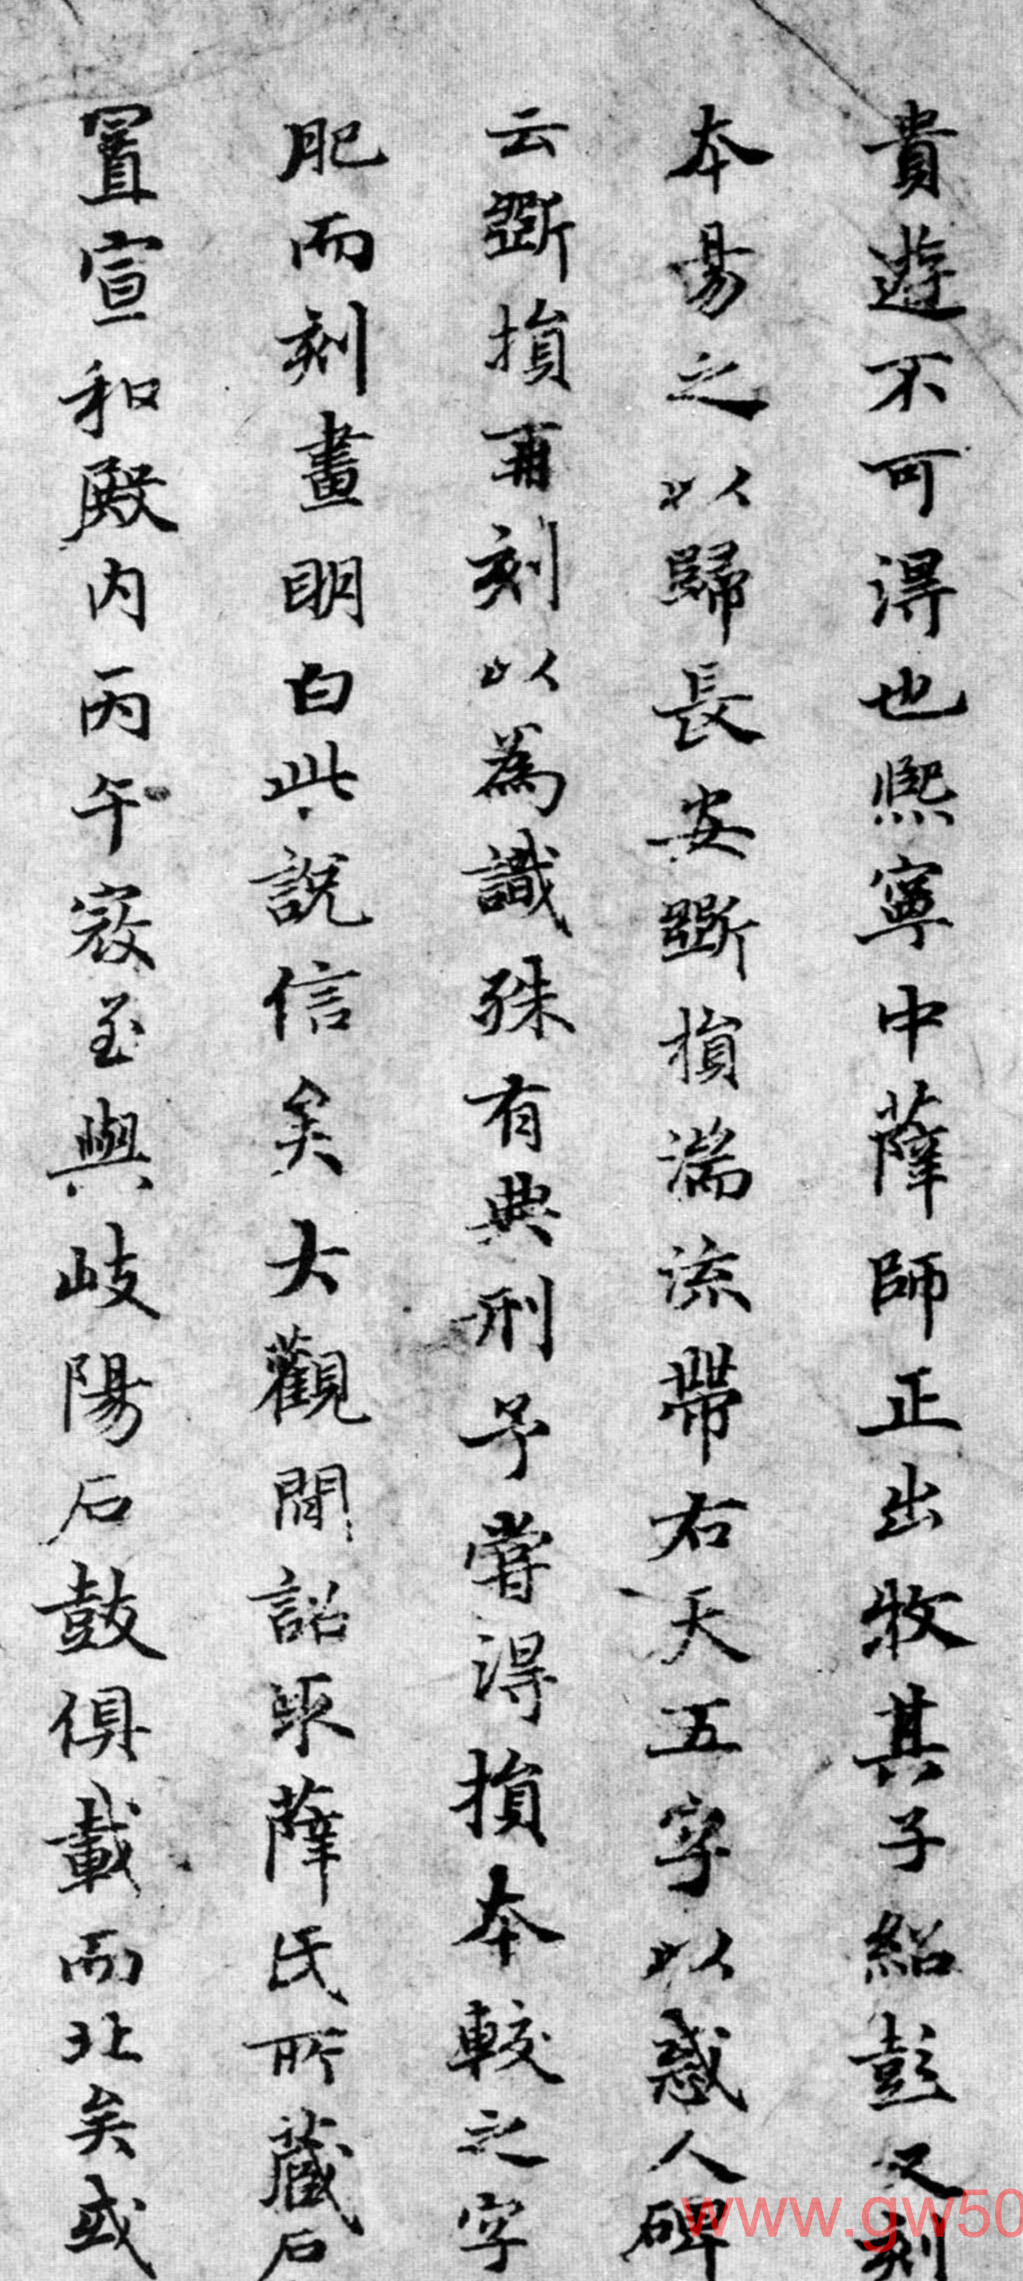 貴遊不可得也熈寧中薛師正出牧其子紹彭又刻
本易之以歸長安斵損湍流帶右天五字以惑人碑
云斵損再刻以為識殊有典刑予嘗得損本較之字
肥而刻畫明白此說信矣大觀間詔取薛氏所藏石
置宣和殿内丙午寇至與岐陽石鼓俱載而北矣或
www.gw50